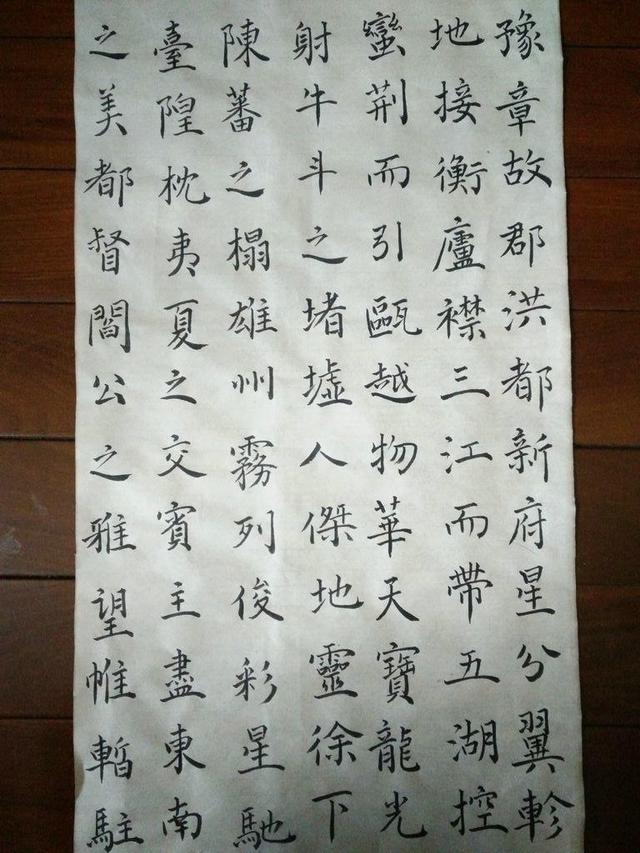 豫章故郡洪都新府星分翼軫
地接衡廬襟三江而帶五湖控
蠻荆而引甌越物華天寶龍光
射牛斗之堵墟人傑地靈徐下
陳蕃之榻雄州霧列俊彩星馳
臺隍枕夷夏之交賓主盡東南
之美都督閻公之雅望帷暫駐